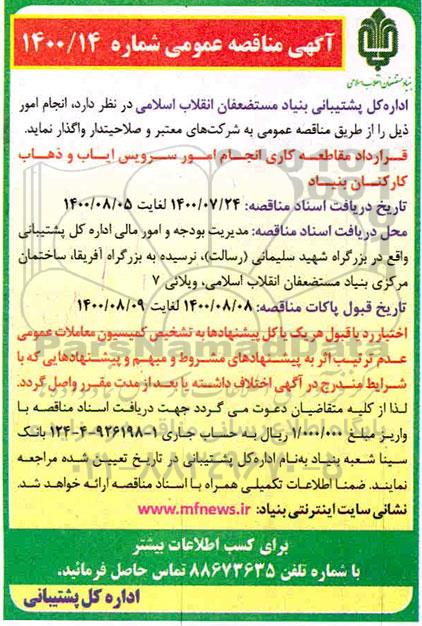 آگهی مناقصه عمومی شماره ۱۴۰۰/۱۴
بنیاد مستضعفان انقلاب اسلامی
اداره‌کل پشتیبانی بنیاد مستضعفان انقلاب اسلامی در نظر دارد، انجام امور
ذیل را از طریق مناقصه عمومی به شرکت‌های معتبر و صلاحیتدار واگذار نماید.
قرارداد مقاطعه کاری انجام امور سرویس ایاب و ذهاب
کارکنان بنیاد
تاریخ دریافت اسناد مناقصه: ۱۴۰۰/۰۷/۲۴ لغایت ۱۴۰۰/۰۸/۰۵
محل دریافت اسناد مناقصه: مدیریت بودجه و امور مالی اداره کل پشتیبانی
واقع در بزرگراه شهید سلیمانی (رسالت)، نرسیده به بزرگراه آفریقا، ساختمان
مرکزی بنیاد مستضعفان انقلاب اسلامی، ویلائی ۷
تاریخ قبول پاکات مناقصه: ۱۴۰۰/۰۸/۰۸ لغایت ۱۴۰۰/۰۸/۰۹
اختیار رد یا قبول هر یک یا کل پیشنهادها به تشخیص کمیسیون معاملات عمومی
عدم ترتیب اثر به پیشنهادهای مشروط و مبهم و پیشنهادهایی که با
شرایط مندرج در آگهی اختلاف داشته یا بعد از مدت مقرر واصل گردد.
لذا از کلیه متقاضیان دعوت می گردد جهت دریافت اسناد مناقصه با
واریز مبلغ ۱/۰۰۰/۰۰۰ ریال به حساب جاری ۱-۹۲۶۱۹۸-۴-۱۲۴ بانک
سینا شعبه بنیاد به‌نام اداره‌کل پشتیبانی در تاریخ تعیین شده مراجعه
نمایند. ضمنا اطلاعات تکمیلی همراه با اسناد مناقصه ارائه خواهد شد.
نشانی سایت اینترنتی بنیاد: www.mfnews.ir
برای کسب اطلاعات بیشتر
با شماره تلفن ۸۸۶۷۳۶۳۵ تماس حاصل فرمائید.
اداره کل پشتیبانی